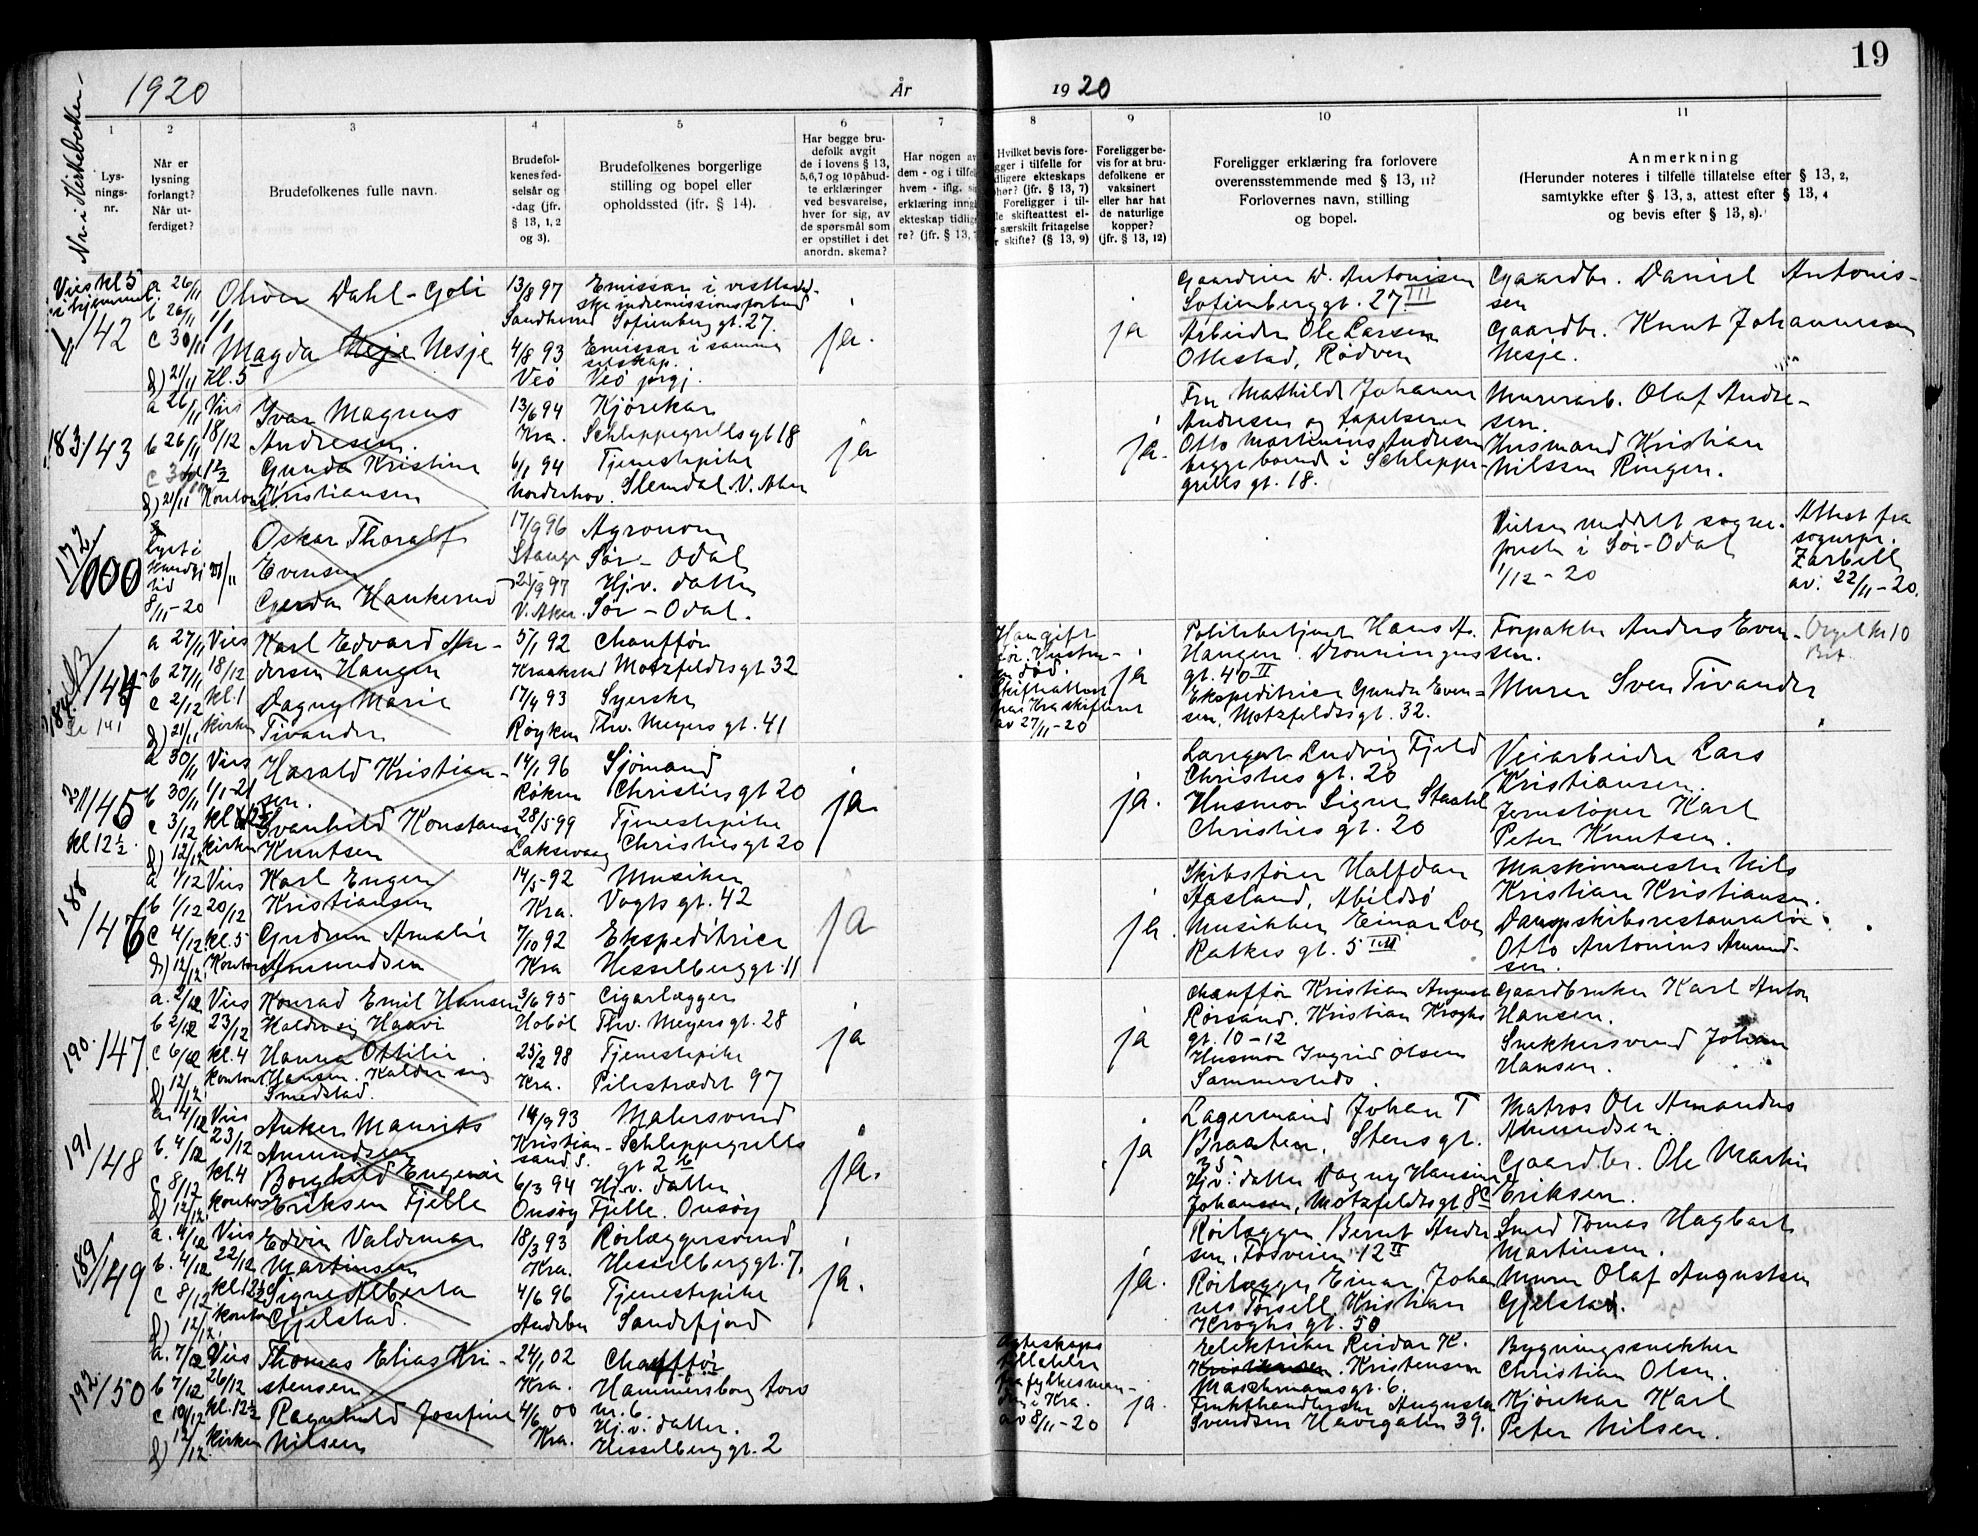 19
1920
År
1920
Nr. i Kirkeboken
1
Lys-
nings-
nr.
2
Når er
lysning
forlangt?
Når ut-
ferdiget?
3
Brudefolkenes fulle navn.
4
Brudefol-
kenes fød-
selsår og
-dag (jfr.
§ 13, 1, 2
og 3).
5
Brudefolkenes borgerlige
stilling og bopel eller
opholdssted (ifr. § 14).
6
Har begge bru-
defolk avgit
de i lovens § 13,
5, 6, 7 og 10 påbud-
te erklæringer
ved besvarelse,
hver for sig, av
de spørsmål som
er opstillet i det
anordn. skema?
7
Har nogen av
dem - og i tilfelle
hvem - iflg. 
erklæring inngåt
ekteskap tidlige-
re? (jfr. § 13,
8
Hvilket bevis fore-
ligger i tilfelle for
tidligere ekteskaps
ophør? (jfr. § 13, 7)
Foreligger i til-
felle skifteattest el-
ler særskilt fritagelse
for skifte? (§ 13, 9)
9
Foreligger be-
vis for at bru-
defolkene er
vaksinert
eller har hat
de naturlige
kopper?
(jfr. § 13, 12)
10
Foreligger erklæring fra forlovere
overensstemmende med § 13, 11?
Forlovernes navn, stilling
og bopel.
11
Anmerkning
(Herunder noteres i tilfelle tillatelse efter § 13, 2,
samtykke efter § 13, 3, attest efter § 13, 4
og bevis efter § 13, 8).
Vies kl 5
i hjemmet
142
a 26/11
b 26/11
c 30/11
d) 21/11 kl. 5
Oliver Dahl-Goli
Magda Nesje
13/8 97
Sandherred
4/8 93
Veö
Emissær i vestlands-
ske indremissionsforbund
Sofienberg gt. 27.
Emissær i samme
selskap.
Veö prgj.
ja.
ja
Gaardeier D. Antonisen
Sofienberggt. 27 III
Arbeider Ole Larsen
Ottestad, Rödven
Gaardbr. Daniel Antonis-
sen
Gaardbr. Knut Johannessen
Nesje.
183/143
a 26/11 Vies
b 26/11 18/12
d) 21/11 Kontoret
Ivar Magnus
Andresen.
Gunda Kristine
Kristiansen
13/6 94
Kra.
6/1 94
Norderhov.
Kjörekar
Schleppegrellsgt 18
Tjenestepike
Slemdal V. Aker
ja
ja.
Fru Mathilde Johanne
Andresen og Tapetserer
Otto Martinius Andresen
begge boende i Schleppe-
grells gt. 18.
Murerarb. Olaf Andre-
sen.
Husmand Kristian
Nilssen Ringen.
172/000
Lyst i
8/11-20
Oskar Thoralf
Evensen
Gerda Haukerud
17/9 96
Stange
25/9 97
V. Aker.
Agronom
Sør-Odal
Hj.v. datter
Sør-Odal.
Vielsen meddelt sogne-
prest i Sør-Odal
1/12-20
Attest fra
sognepr.
Zarbell
av. 22/11-20.
144
Se 141
a 27/11 Vies
b 27/11 18/12
c 2/12 kl. 1
d) 21/11 kirken
Karl Edvard An-
dersen Haugen
Dagny Marie
Tivander
5/1 92
Kraakerud
17/4 93
Røyken
Chaufför
Motzfeldtsgt 32
Syerske
Thv. Meyers gt. 41
Han gift
för. Hustru-
en död.
Skifteattest
fra Kra skifteret
av 27/11-20
ja
Politibetjent Hans A.
Haugen. Dronningens
gt. 40 II
Ekspeditrice Gunda Even-
sen, Motzfeldtsgt. 32.
Forpakter Anders Even-
sen.
Murer Sven Tivander
Orgel kr 10
Bet.
145
kl 12½.
a 30/11 Vies
b 30/11 1/1-21
c 3/12
d) 12/12 kirken
Harald Kristian-
sen.
Svanhild Konstanse
Knutsen
14/1 96
Röken
28/5 99
Laksevaag
Sjömand
Christiesgt 20
Tjenestepike
Christiesgt 20
ja.
ja.
Langust Ludvig Fjeld
Christies gt. 20
Husmor Signe Staahl
Christies gt. 20
Veiarbeider Lars
Kristiansen.
Jernstöper Karl
Peter Knutsen.
188
146
a 1/12 Vies
b 1/12 20/12
c 4/12 kl. 5
d) 12/12. Kontoret
Karl Eugen
Kristiansen
Gudrun Amalie
Amundsen
14/5-92
Kra.
7/10 92
Kra
Musiker
Vogts gt. 42
Ekspeditrice
Hesselberggt. 11
ja
ja.
Skibsförer Halfdan
Aasland, Abildsö
Musikker Einar Lie
Ratkes gt. 5 III
Maskinmester Nils
Kristian Kristiansen.
Dampskibsrestauratör
Otto Antonius Amund-
sen.
190.
147.
a. 2/12 Vies
b 2/12 23/12
c 6/12 kl. 4
d) 12/12. kontoret
Konrad Emil Hansen
Kalder sig Haavi
Hanna Ottilie
Hansen. Kalder sig
Smedstad.
3/6 95
Hobøl
25/2 98
Kra.
Cigarlægger
Thv. Meyersgt. 28
Tjenestepike
Pilestrædet 97
ja
ja
Chauffør Kristian August
Rörsand. Kristian Kroghs
gt. 10-12
Husmor Ingrid Olsen
Sammesteds.
Gaardbruker Karl Anton
Hansen.
Snekkersvend Johan
Hansen.
191
148
a. 4/12 Vies
b. 4/12 23/12
c 8/12 kl. 4
d) 12/12. kontoret
Anker Maurits
Amundsen
Borghild Eugenie
Eriksen Fjelle
14/9 93
Kristian-
sand S.
6/3 94
Onsöy
Malersvend
Schleppegrells
gt 2 b
Hj.v. datter
Fjelle. Onsöy
ja.
ja
Lagermand Johan T
Braaten, Stens gt.
35
Hj.v. datter Dagny Hansine
Johansen, Motzfeldtsgt 8c
Matros Ole Amandus
Amundsen.
Gaardbr. Ole Martin
Eriksen.
189/149
a. 4/12 Vies
b. 4/12 22/12
c 8/12 kl. 12½
d) 12/12. kontoret
Edvin Valdemar
Martinsen
Signe Alberta
Gjelstad.
18/3 93
Kra.
4/6 96
Andebu
Rörlæggersvend
Hesselberggt. 7.
Tjenestepike
Sandefjord
ja.
ja.
Rörlægger Bernt Ander
sen, Fosveien 12 II
Rörlægger Einar Johan
nes Torsell, Kristian
Kroghs gt. 50
Smed Tomas Hagbart
Martinsen.
Murer Olaf Augustsen
Gjelstad.
192
150
a. 7/12 Vies
b 7/12 26/12
c 10/12 kl. 12½
d) 12/12. kirken
Thomas Elias Kri-
stensen
Ragnhild Josefine
Nilsen
24/1 02
Kra.
4/6 00
Kra.
Chauffør
Hammersborg torv
nr. 6.
Hj.v. datter.
Hesselberg gt. 2
Egteskaps
tillatelse
fra fylkesman-
den i Kra.
av 8/11-20
ja.
Elektriker Reidar K.
Kristiansen. Kristensen
Maschmansgt. 6.
Frukthandlerske Augusta
Svendsen Havegaten 39.
Bygningssnekker
Christian Olsen.
Kjörekar Karl
Peter Nilsen.